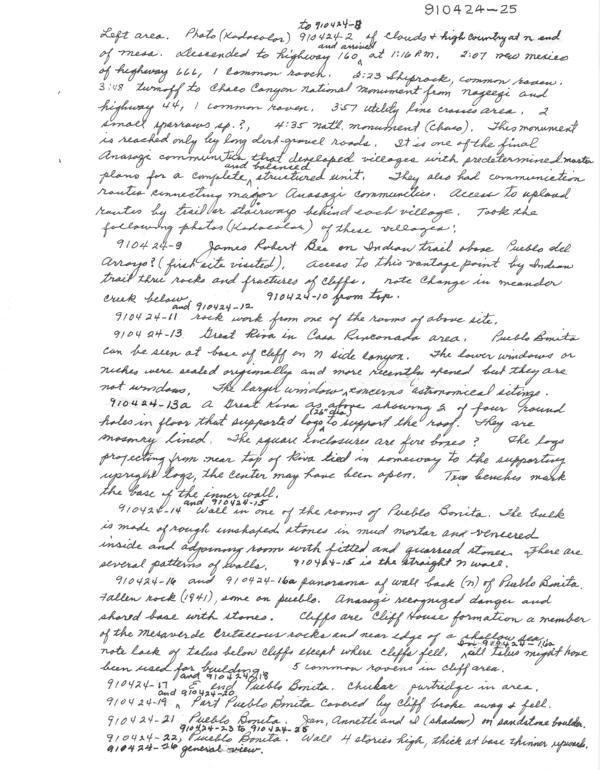 910424-25
to 910424-8
Left area. Photo (Kodacolor) 910424-2 of clouds & high country at n end
of mesa. Descended to highway 160 and arrived at 1:16 P.M. 2:07 new mexico
of highway 666, 1 common raven. 2:23 Shiprock, common raven.
3:48 turnoff to Chaco Canyon national monument from nageezi and
highway 44, 1 common raven. 3:57 utility line crosses area. 2
small sparrows sp.?, 4:35 natl. monument (Chaco). This monument
is reached only by long dirt-gravel roads. It is one of the final
Anasazi communities that developed villages with predetermined master
plans for a complete and balanced structured unit. They also had communication
routes connecting major Anasazi communities. Access to upload
routes by trail or stairways behind each village. Took the
following photos (Kodacolor) of these villages:
910424-9 James Robert Bee on Indian trail above Pueblo del
Arroyo? (first site visited). Access to this vantage point by Indian
trail thru rocks and fractures of cliffs. note change in meander
creek below. 910424-10 from top.
910424-11 and 910424-12 rock work from one of the rooms of above site.
910424-13 Great Kiva in Casa Rinconada area. Pueblo Bonita
can be seen at base of cliff on N side canyon. The lower windows or
niches were sealed originally and more recently opened but they are
not windows. The larger window concerns astronomical sitings.
910424-13a A Great Kiva as above showing 2 of four round
holes in floor that supported logs (26" dia.) to support the roof. They are
masonry lined. The square enclosures are fire boxes? The logs
projecting from near top of Kiva tied in someway to the supporting
upright logs, the center may have been open. Two benches mark
the base of the inner wall.
910424-14 and 910424-15 Wall in one of the rooms of Pueblo Bonita. The bulk
is made of rough unshaped stones in mud mortar and veneered
inside and adjoining room with fitted and quarried stones. There are
several patterns of walls. 910424-15 is the straight N wall.
910424-16 and 910424-16a panorama of wall back (N) of Pueblo Bonita.
Fallen rock (1941), some on pueblo. Anasazi recognized danger and
shored base with stones. Cliffs are Cliff House formation a member
of the Mesaverde Cretaceous rocks and near edge of a shallow sea.
note lack of talus below cliffs except where cliffs fell. in 910424-16a all talus might have
been used for building. 5 common ravens in cliff area.
910424-17 and 910424-18 E end Pueblo Bonita. Chukar partridge in area.
910424-19 and 910424-20 Part Pueblo Bonita covered by cliff broke away & fell.
910424-21 Pueblo Bonita. Jan, Annette and I (shadow) on sandstone boulder.
910424-22, 910424-23 to 910424-25 Pueblo Bonita. Wall 4 stories high, thick at base thinner upwards.
910424-26 general view.